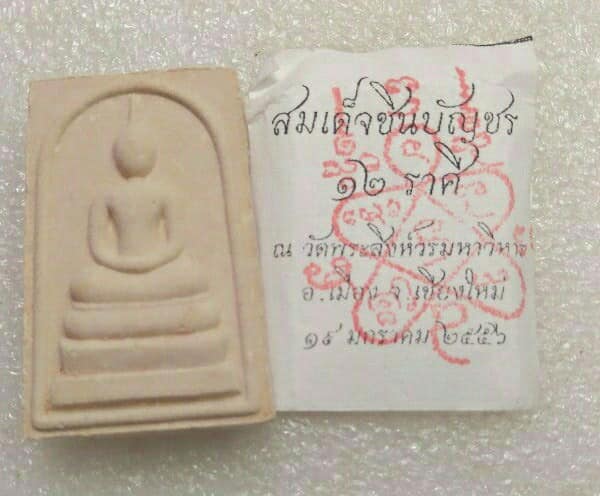 สมเด็จชินบัญชร
๑๒ ราศี
ณ วัดพระสิงห์วรมหาวิหาร
อ.เมือง จ.เชียงใหม่
๑๙ มกราคม ๒๕๕๖